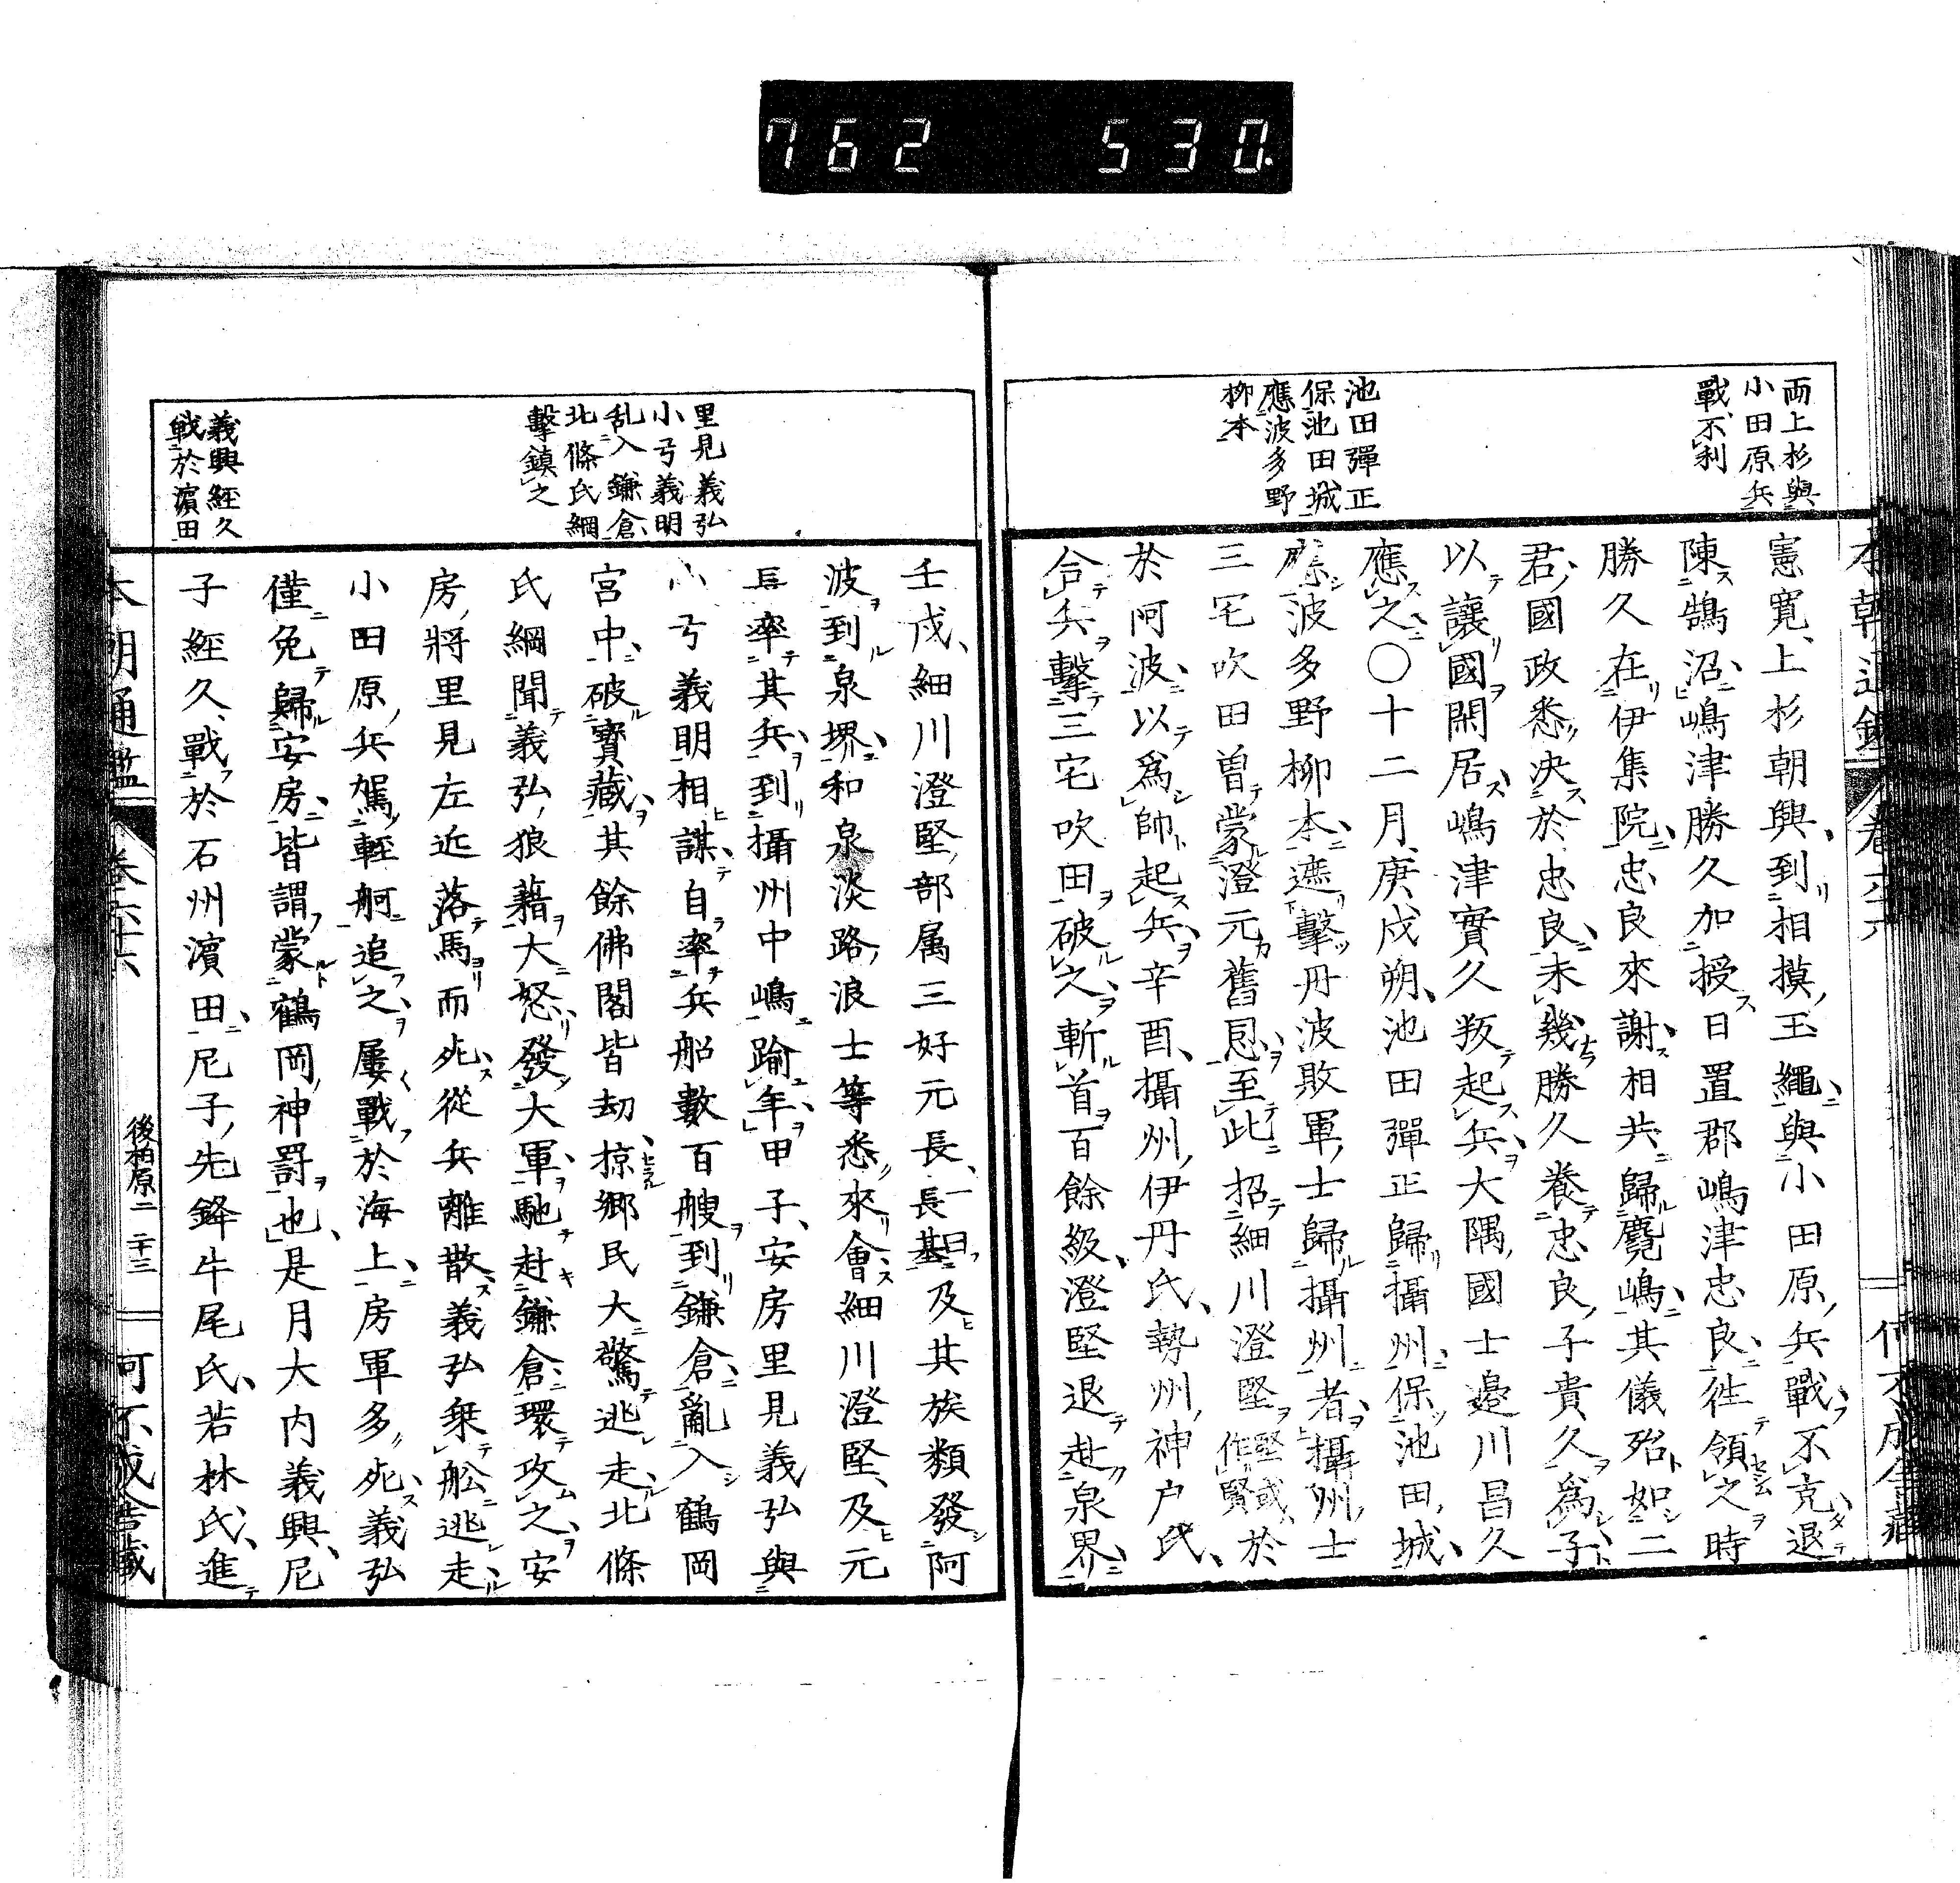 762 530
両上杉與
小田原兵
戰不利
池田彈正
保池田城
應波多野
柳本
憲寛上杉朝興到相摸玉繩與小田原兵戰不克退
陳鵠沼嶋津勝久加授日置郡嶋津忠良徃領之時
勝久在伊集院忠良來謝相共歸麑嶋其儀殆如二
君國政悉决於忠良未幾勝久養忠良子貴久爲子
以讓國閑居嶋津實久叛起兵大隅國士邉川昌久
應之〇十二月庚戌朔池田彈正歸攝州保池田城
應波多野柳本遮擊丹波敗軍士歸攝州者攝州士
三宅吹田曽蒙澄元舊恩至此招細川澄堅堅或作賢於
於阿波以爲帥起兵辛酉攝州伊丹氏勢州神戸氏
合兵擊三宅吹田破之斬首百餘級澄堅退赴泉界
里見義弘
小弓義明
乱入鎌倉
北條氏綱
擊鎮之
義興経久
戦於濵田
壬戌細川澄堅部属三好元長一曰長基及其族類發阿
波到泉堺和泉淡路浪士等悉來會細川澄堅及元
長率其兵到攝州中嶋踰年甲子安房里見義弘與
小弓義明相謀自率兵船數百艘到鎌倉亂入鶴岡
宮中破寶藏其餘佛閣皆劫掠郷民大驚逃走北條
氏綱聞義弘狼藉大怒發大軍馳赴鎌倉環攻之安
房將里見左近落馬而死從兵離散義弘乗舩逃走
小田原兵駕輕舸追之屢戰於海上房軍多死義弘
僅免歸安房皆謂蒙鶴岡神罰也是月大内義興尼
子経久戰於石州濵田尼子先鋒牛尾氏若林氏進
本朝通鑑 卷六十六 後柏原二 二十三